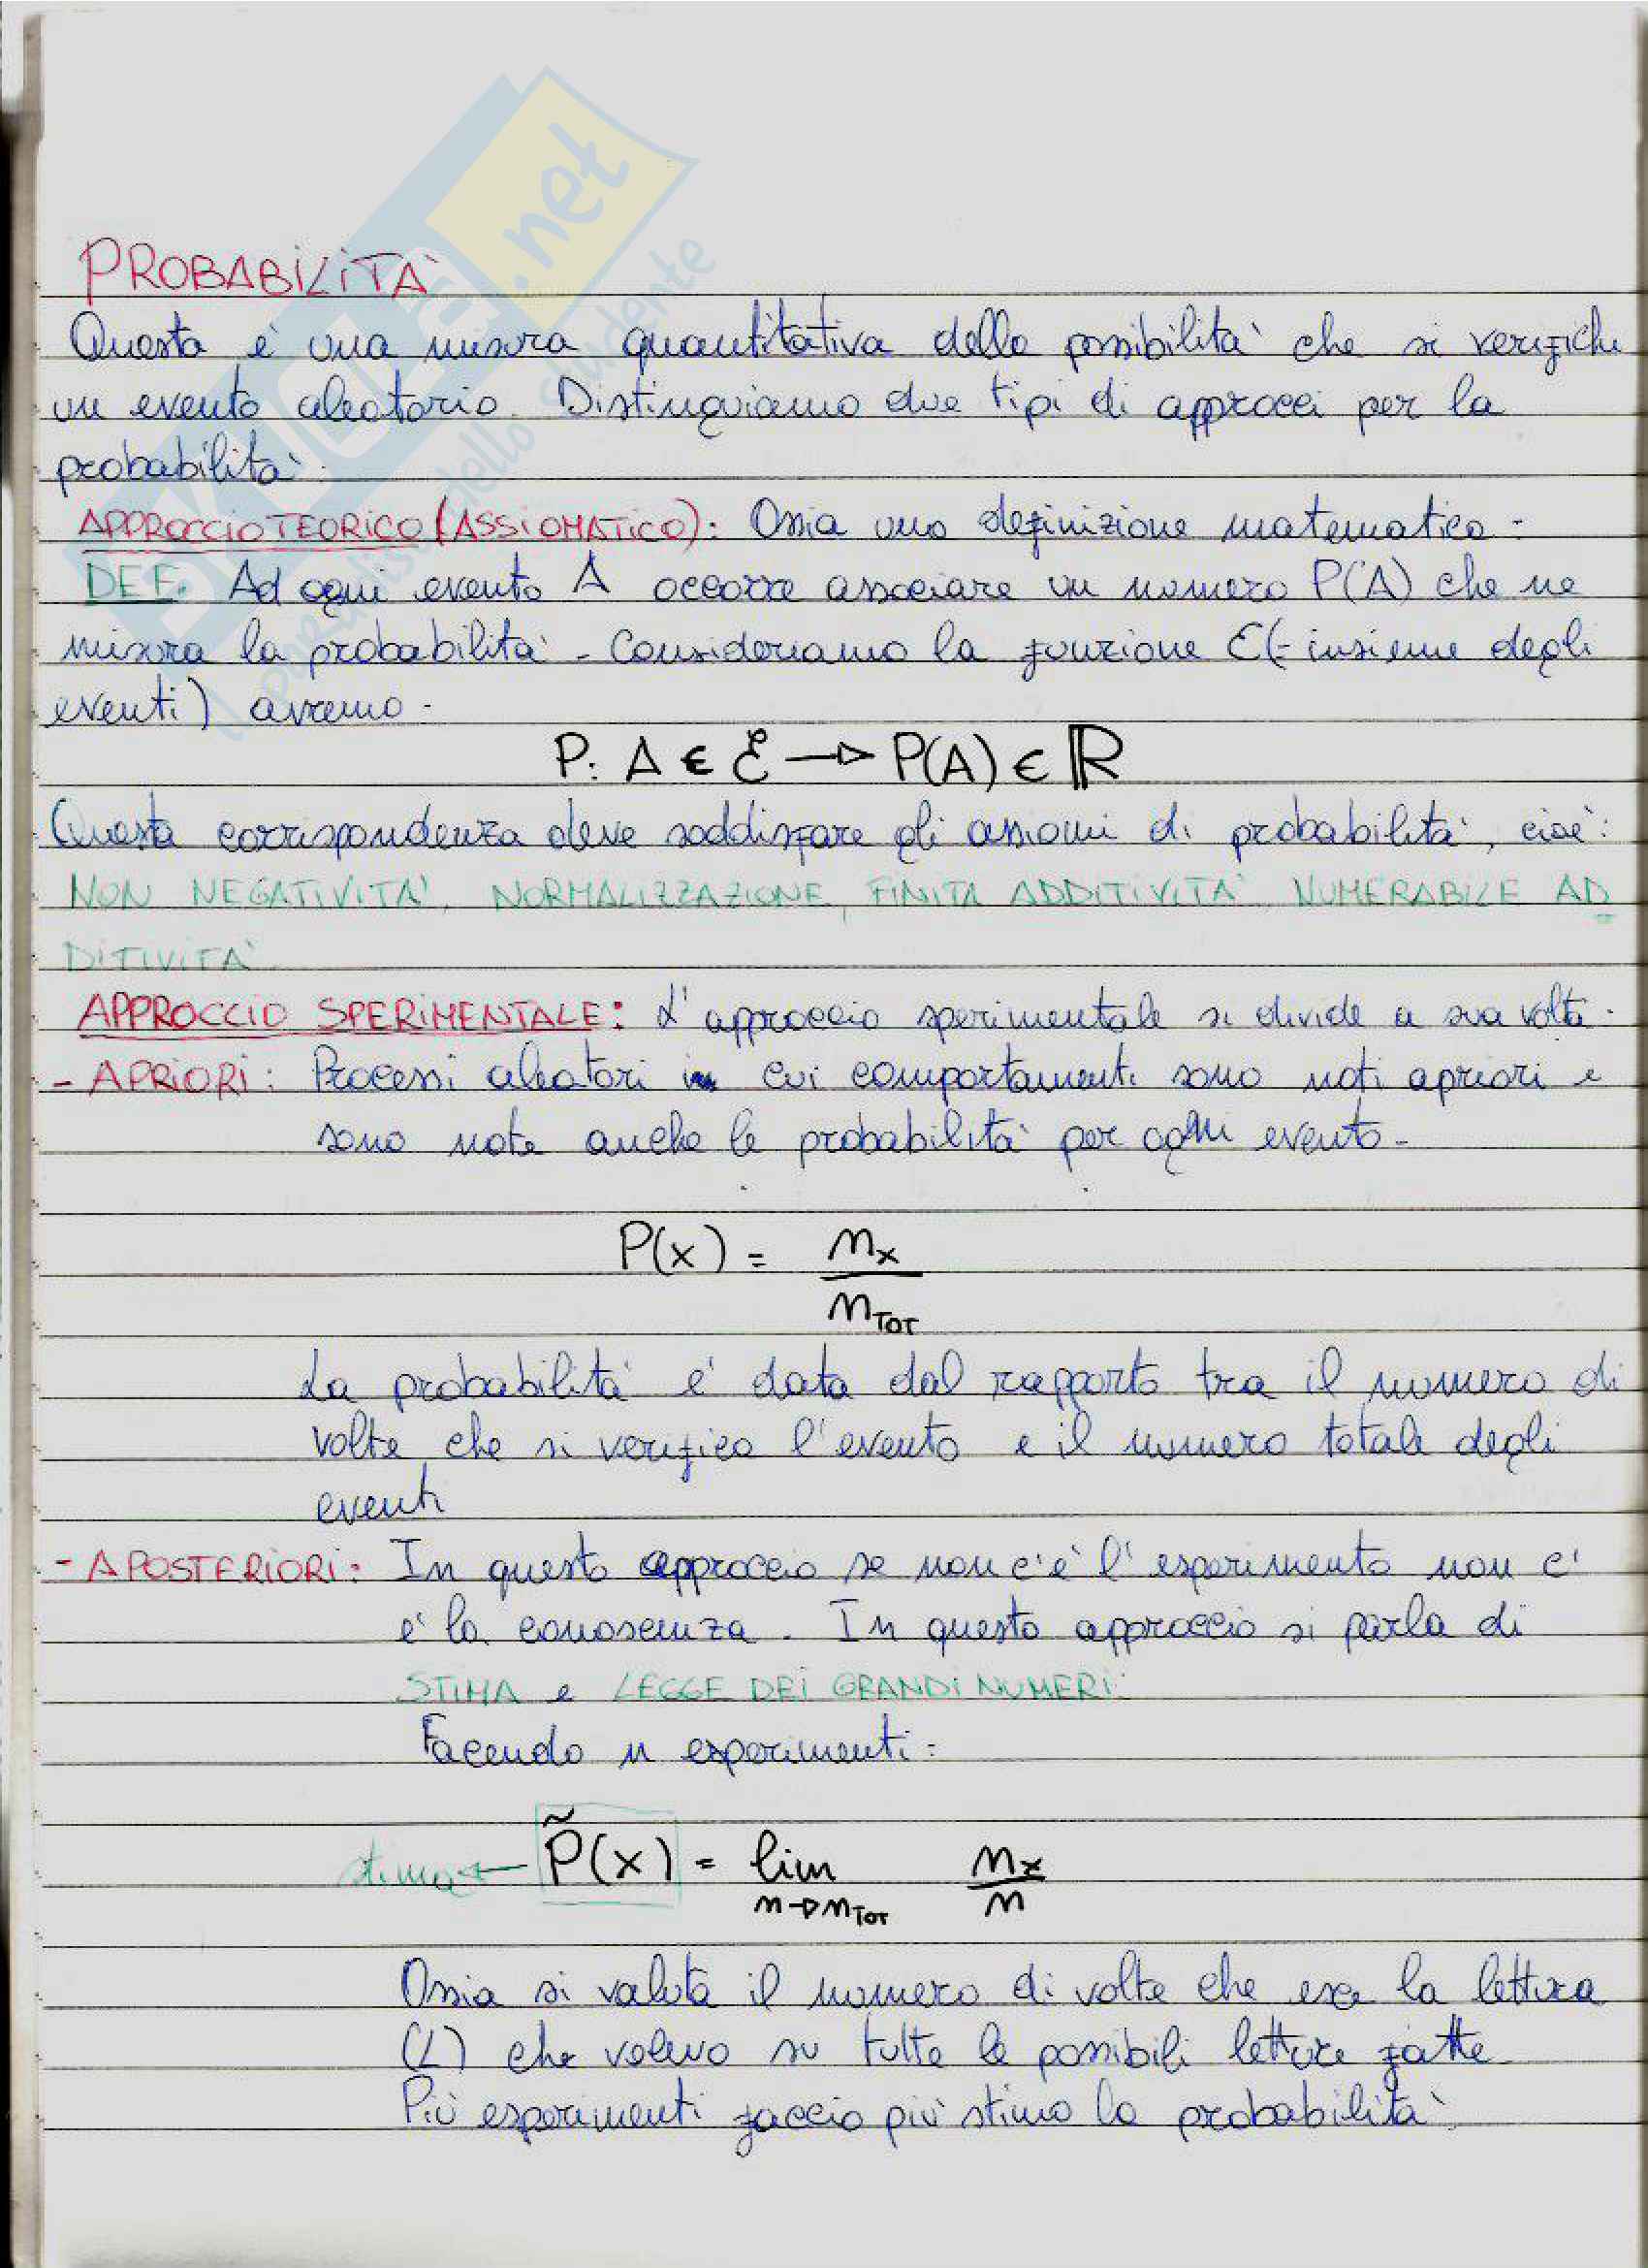 PROBABILITA'
Questa è una misura quantitativa della possibilità che si verifichi
un evento aleatorio. Distinguiamo due tipi di approcci per la
probabilità:
APPROCCIO TEORICO (ASSIOMATICO): Ossia una definizione matematica:
DEF. Ad ogni evento A occorre associare un numero P(A) che ne
misura la probabilità. Consideriamo la funzione E(= insieme degli
eventi) avremo:
P: A ∈ ℰ → P(A) ∈ ℝ
Questa corrispondenza deve soddisfare gli assiomi di probabilità, cioè:
NON NEGATIVITA', NORMALIZZAZIONE, FINITA ADDITIVITA', NUMERABILE AD
DITIVITA'
APPROCCIO SPERIMENTALE: L'approccio sperimentale si divide a sua volta:
- APRIORI: Processi aleatori i cui comportamenti sono noti apriori e
sono note anche le probabilità per ogni evento.
P(x) = n_x / n_TOT
La probabilità è data dal rapporto tra il numero di
volte che si verifica l'evento e il numero totale degli
eventi
- APOSTERIORI: In questo approccio se non c'è l'esperimento non c'
è la conoscenza. In questo approccio si parla di
STIMA e LEGGE DEI GRANDI NUMERI:
Facendo n esperimenti:
stima ← P̃(x) = lim n→n_TOT n_x / n
Ossia si valuta il numero di volte che esce la lettura
(L) che volevo su tutte le possibili letture fatte.
Più esperimenti faccio più stimo la probabilità.
SKUOLA.net
il paradiso dello studente